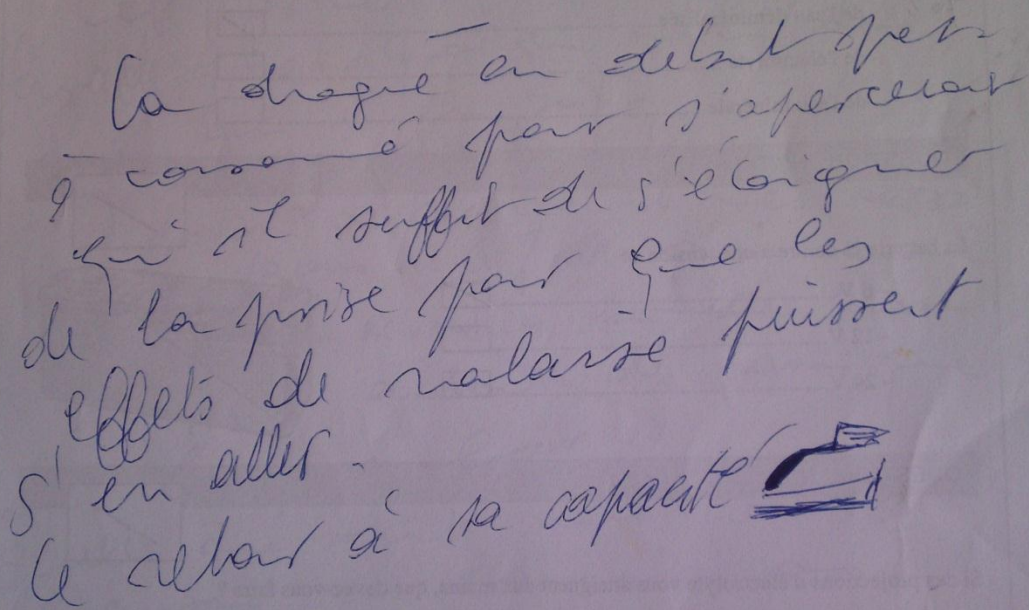 La drogue en debut peu
à consomé pour s'apercevoir
qu'il suffit de s'éloigner
de la prise pour que les
effets de malaise puissent
s'en aller.
Le retour à sa capacité